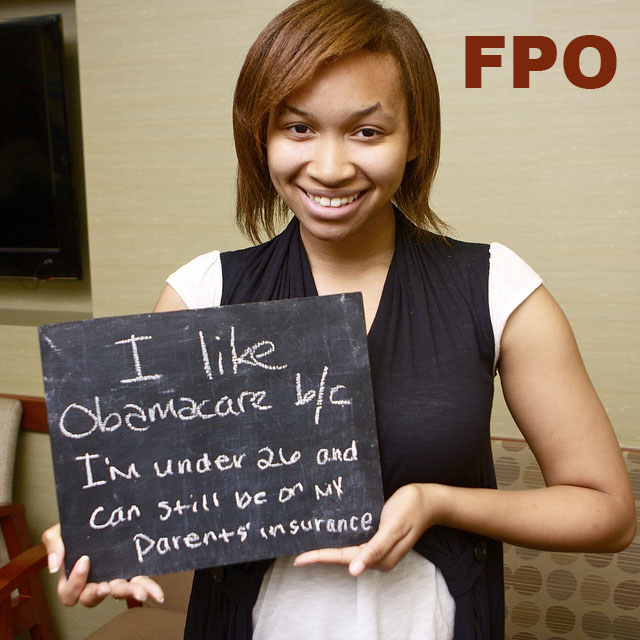 FPO
I like
Obamacare b/c
I'm under 26 and
can still be on my
parents' insurance